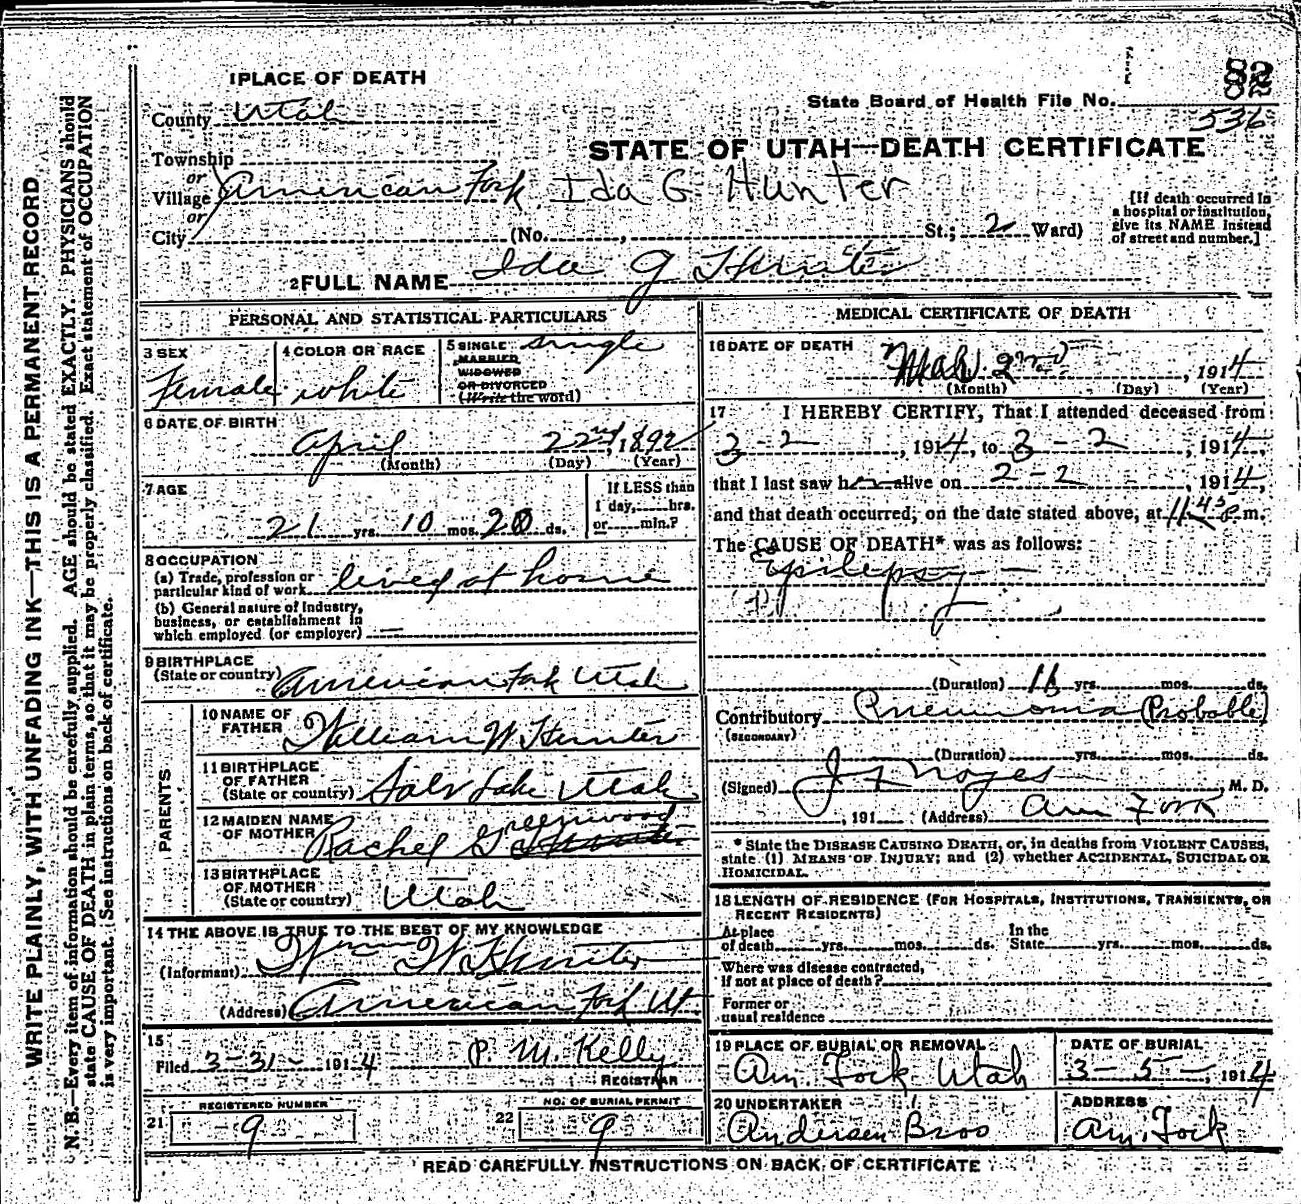 WRITE PLAINLY, WITH UNFADING INK—THIS IS A PERMANENT RECORD
N. B.—Every item of information should be carefully supplied. AGE should be stated EXACTLY. PHYSICIANS should
state CAUSE OF DEATH in plain terms, so that it may be properly classified. Exact statement of OCCUPATION
is very important. (See instructions on back of certificate.
1 PLACE OF DEATH
82
State Board of Health File No.
536
County Utah
STATE OF UTAH—DEATH CERTIFICATE
Township
or
Village American Fork Ida G Hunter
or
City (No. , St.; 2 Ward)
[If death occurred in
a hospital or institution,
give its NAME instead
of street and number.]
2 FULL NAME Ida G Hunter
PERSONAL AND STATISTICAL PARTICULARS
3 SEX
Female
4 COLOR OR RACE
white
5 SINGLE single
MARRIED
WIDOWED
OR DIVORCED
(Write the word)
6 DATE OF BIRTH
April 22nd, 1892
(Month) (Day) (Year)
7 AGE
21 yrs. 10 mos. ds.
If LESS than
1 day, hrs.
or min.?
8 OCCUPATION
(a) Trade, profession or
particular kind of work lived at home
(b) General nature of industry,
business, or establishment in
which employed (or employer) —
9 BIRTHPLACE
(State or country) American Fork Utah
PARENTS
10 NAME OF
FATHER William W Hunter
11 BIRTHPLACE
OF FATHER
(State or country) Salt Lake Utah
12 MAIDEN NAME
OF MOTHER Rachel G Greenwood Hunter
13 BIRTHPLACE
OF MOTHER
(State or country) Utah
14 THE ABOVE IS TRUE TO THE BEST OF MY KNOWLEDGE
(Informant) Wm W Hunter
(Address) American Fork Ut
15
Filed 3-31- 1914 P. M. Kelly
REGISTRAR
21 REGISTERED NUMBER
9
22 NO. OF BURIAL PERMIT
9
MEDICAL CERTIFICATE OF DEATH
16 DATE OF DEATH
2nd, 1914
(Month) (Day) (Year)
17 I HEREBY CERTIFY, That I attended deceased from
3-2, 1914, to 3-2, 1914,
that I last saw h alive on 2-2, 1914,
and that death occurred, on the date stated above, at 11:45 P.m.
The CAUSE OF DEATH* was as follows:
Epilepsy —
(Duration) yrs. mos. ds.
Contributory Pneumonia (Probable)
(SECONDARY)
(Duration) yrs. mos. ds.
(Signed) Noyes M. D.
, 191 (Address) Am Fork
* State the DISEASE CAUSING DEATH, or, in deaths from VIOLENT CAUSES,
state (1) MEANS OF INJURY; and (2) whether ACCIDENTAL, SUICIDAL OR
HOMICIDAL.
18 LENGTH OF RESIDENCE (FOR HOSPITALS, INSTITUTIONS, TRANSIENTS, OR
RECENT RESIDENTS)
At place In the
of death yrs. mos. ds. State yrs. mos. ds.
Where was disease contracted,
if not at place of death?
Former or
usual residence
19 PLACE OF BURIAL OR REMOVAL
Am. Fork Utah
DATE OF BURIAL
3-5-, 1914
20 UNDERTAKER
Andersen Bros
ADDRESS
Am. Fork
READ CAREFULLY INSTRUCTIONS ON BACK OF CERTIFICATE